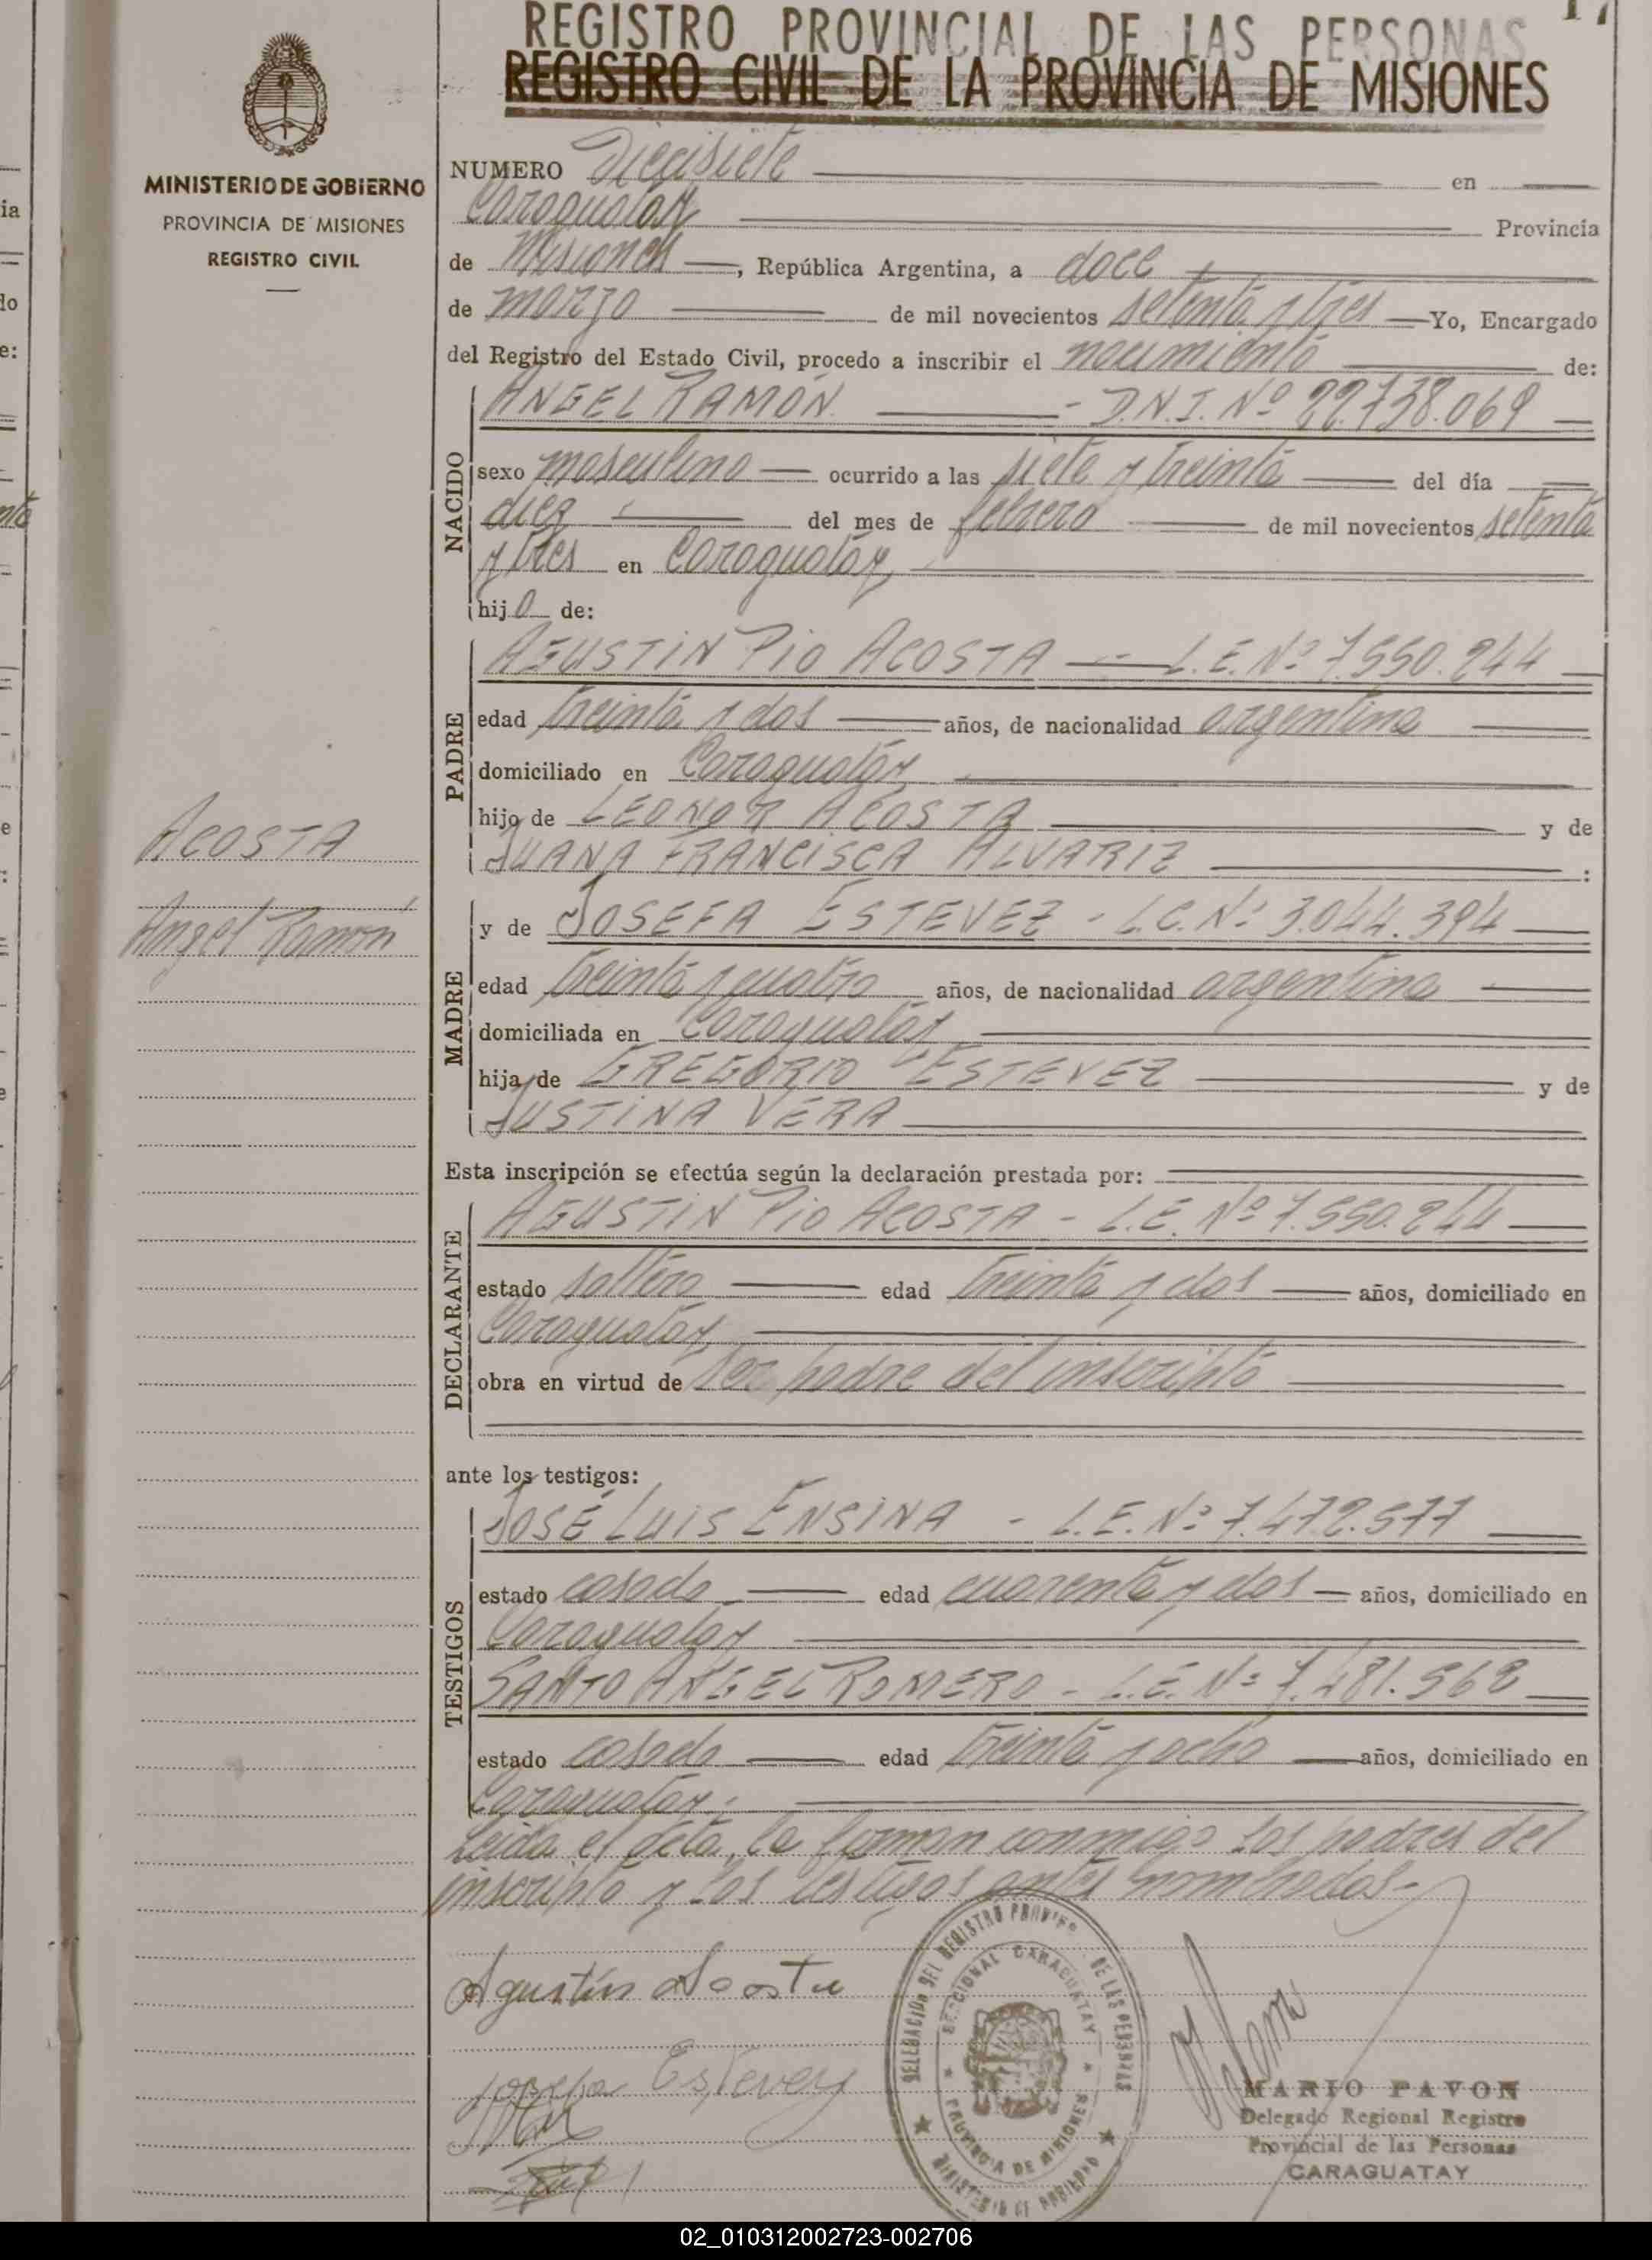 17
REGISTRO PROVINCIAL DE LAS PERSONAS
REGISTRO CIVIL DE LA PROVINCIA DE MISIONES
MINISTERIO DE GOBIERNO
PROVINCIA DE MISIONES
REGISTRO CIVIL
NUMERO Diecisiete en
Caraguatay Provincia
de Misiones, República Argentina, a doce
de marzo de mil novecientos setenta y tres Yo, Encargado
del Registro del Estado Civil, procedo a inscribir el nacimiento de:
NACIDO
ANGEL RAMÓN - D.N.I. Nº 22.738.069
sexo masculino ocurrido a las siete y treinta del día
diez del mes de febrero de mil novecientos setenta
y tres en Caraguatay
hijo de:
PADRE
AGUSTIN PIO ACOSTA - L.E. Nº 7.550.244
edad treinta y dos años, de nacionalidad argentina
domiciliado en Caraguatay
hijo de LEONOR ACOSTA y de
JUANA FRANCISCA ALVARIZ :
ACOSTA
Angel Ramón
MADRE
y de JOSEFA ESTEVEZ - L.C. Nº 3.044.394
edad treinta y cuatro años, de nacionalidad argentina
domiciliada en Caraguatay
hija de GREGORIO ESTEVEZ y de
JUSTINA VERA
Esta inscripción se efectúa según la declaración prestada por:
DECLARANTE
AGUSTIN PIO ACOSTA - L.E. Nº 7.550.244
estado soltero edad treinta y dos años, domiciliado en
Caraguatay
obra en virtud de ser padre del inscripto
ante los testigos:
TESTIGOS
JOSÉ LUIS ENSINA - L.E. Nº 7.472.577
estado casado edad cuarenta y dos años, domiciliado en
Caraguatay
SANTO ANGEL ROMERO - L.E. Nº 7.481.568
estado casado edad treinta y ocho años, domiciliado en
Caraguatay.
Leída el acta, la firman conmigo los padres del
inscripto y los testigos antes nombrados.-
Agustín Acosta
Josefa Estevez
DELEGACION DEL REGISTRO PROVINC. DE LAS PERSONAS
SECCIONAL CARAGUATAY
PROVINCIA DE MISIONES
MINISTERIO DE GOBIERNO
MARIO PAVON
Delegado Regional Registro
Provincial de las Personas
CARAGUATAY
02_010312002723-002706